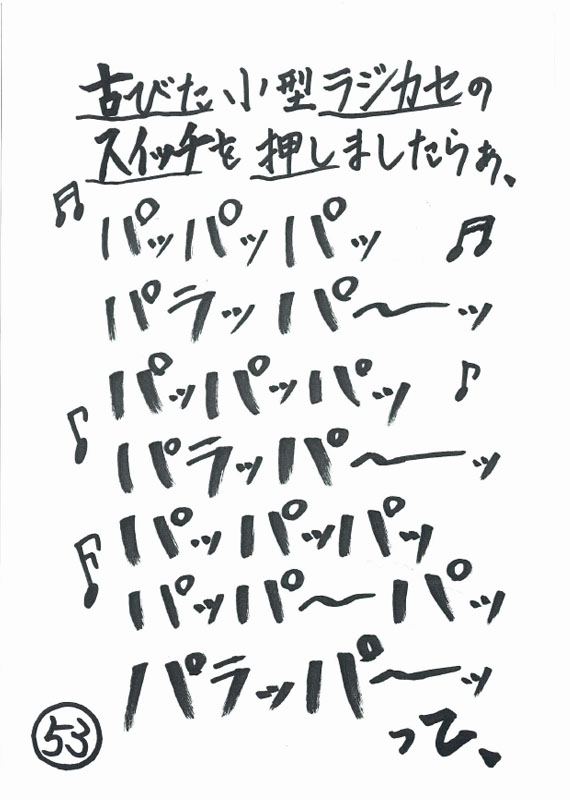 古びた小型ラジカセの
スイッチを押しましたらぁ、
パッパッパッ
パラッパ〜ッ
パッパッパッ
パラッパ〜ッ
パッパッパッ
パッパ〜パッ
パラッパ〜ッ
って、
53